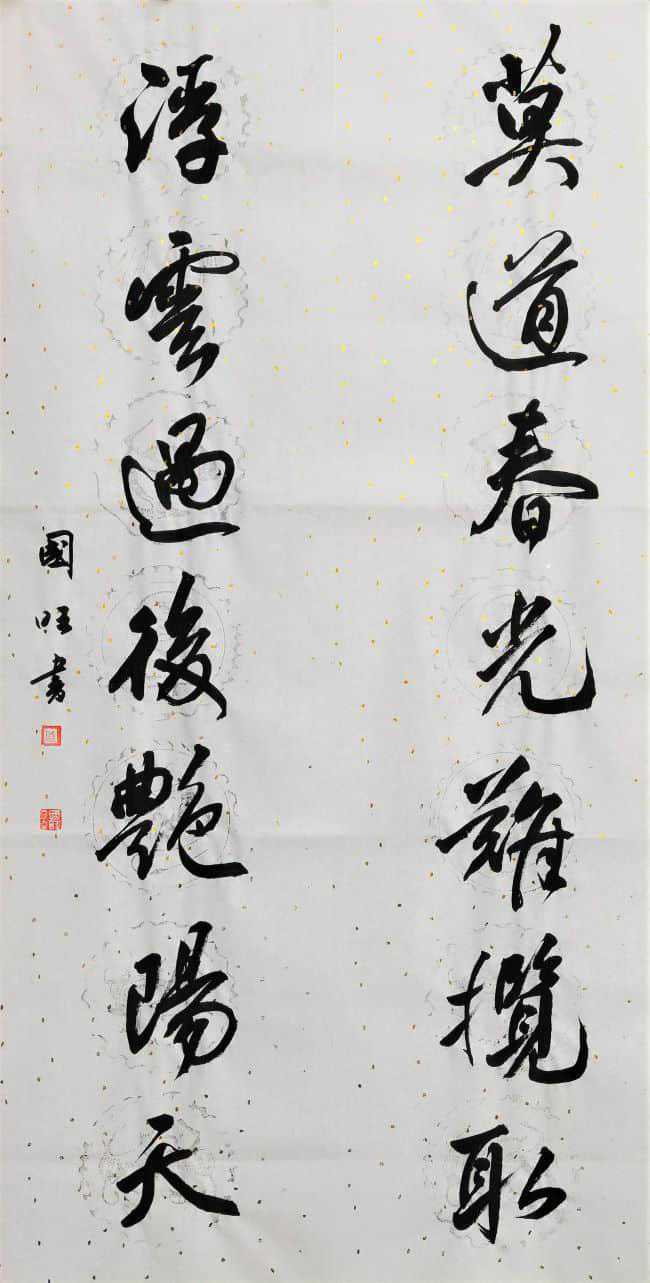 莫道春光難攬取
浮雲過後艷陽天
國旺書